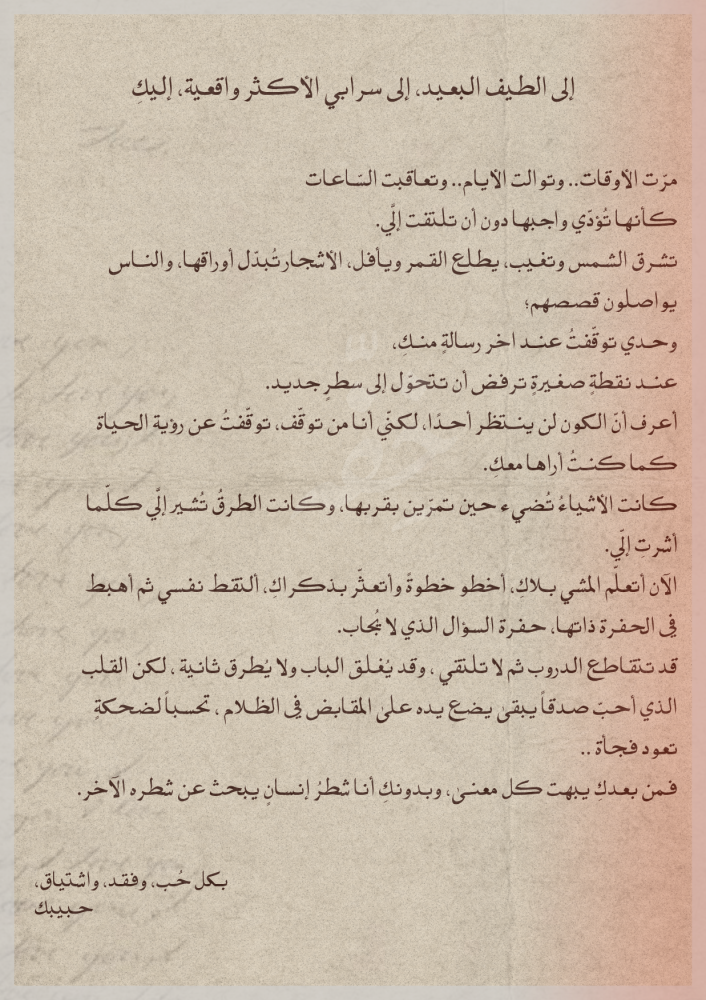 إلى الطيف البعيد، إلى سرابي الأكثر واقعية، إليكِ
مرّت الأوقات.. وتوالت الأيام.. وتعاقبت السّاعات
كأنها تُؤدّي واجبها دون أن تلتفت إلّي.
تشرق الشمس وتغيب، يطلع القمر ويأفل، الأشجار تُبدّل أوراقها، والناس
يواصلون قصصهم؛
وحدي توقّفتُ عند اخر رسالةٍ منك،
عند نقطةٍ صغيرةٍ ترفض أن تتحوّل إلى سطرٍ جديد.
أعرف أنّ الكون لن ينتظر أحدًا، لكنّي أنا من توقّف، توقّفتُ عن رؤية الحياة
كما كنتُ أراها معكِ.
كانت الأشياءُ تُضيء حين تمرّين بقربها، وكانت الطرقُ تُشير إلّي كلّما
أشرت إلّي.
الآن أتعلّم المشي بلاكِ، أخطو خطوةً وأتعثّر بذكراكِ، ألتقط نفسي ثم أهبط
في الحفرة ذاتها، حفرة السؤال الذي لا يُجاب.
قد تتقاطع الدروب ثم لا تلتقي، وقد يُغلق الباب ولا يُطرق ثانية، لكن القلب
الذي أحبّ صدقاً يبقىٰ يضع يده علىٰ المقابض في الظلام، تحسباً لضحكةٍ
تعود فجأة ..
فمن بعدكِ يبهت كل معنىٰ، وبدونكِ أنا شطرُ إنسانٍ يبحث عن شطره الآخر.
بكل حُب، وفقد، واشتياق،
حبيبك